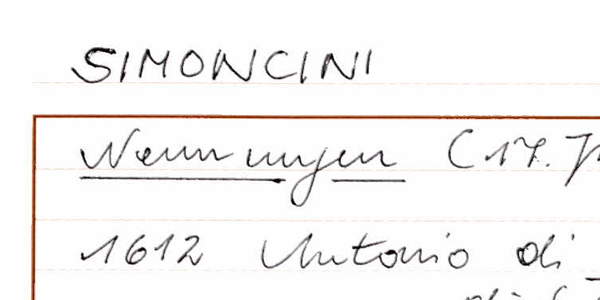 SIMONCINI
Nennungen (17. J
1612 Antonio di
di